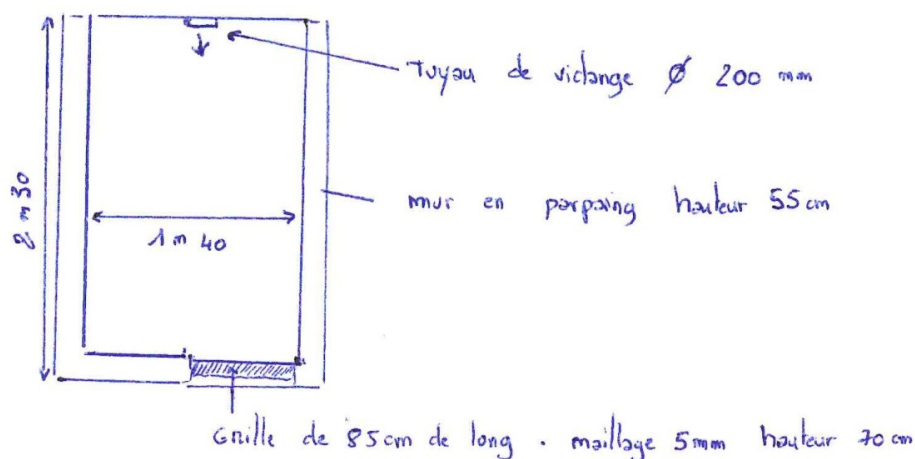 Tuyau de vidange Ø 200 mm
2 m 30
mur en parpaing hauteur 55 cm
1 m 40
Grille de 85 cm de long . maillage 5mm hauteur 70 cm